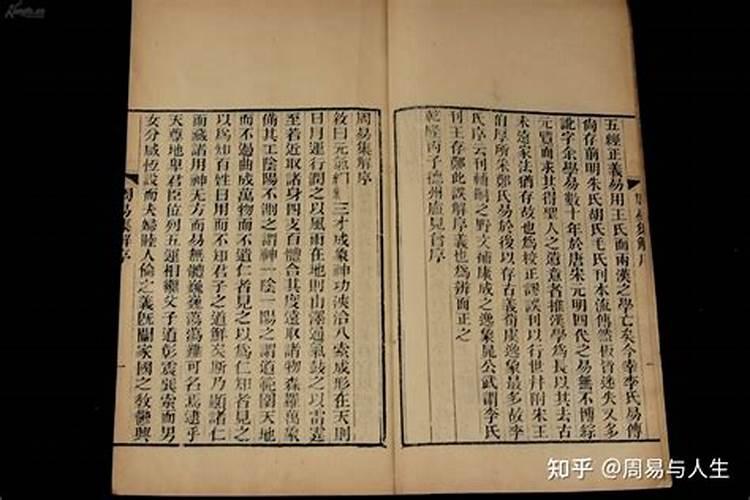 五經正義易用王氏而兩漢之學亡矣今幸李氏易傳
尙存前明朱氏胡氏毛氏刊本流傳然板皆迷失又多
訛字余學易數十年於唐宋元明四代之易無不博綜
元覽而求其得聖人之遺意者推漢學爲長以其去古
未遠家法猶存故也爲校正謬誤刊以行世幷附宋王
伯厚所采鄭氏易於後以存古義荀虞逸象最多故李
氏序云刊輔嗣之野文補康成之逸象晁公武謂李氏
刊王存鄭此誤解序義也爲辨而正之
乾隆丙子德州盧見曾序
周易集解序
周易集解序
敘曰元氣三才成象神功浹洽八索成形在天則
日月運行潤之以風雨在地則山澤通氣鼓之以雷霆
至若近取諸身四支百體合其度遠取諸物森羅萬象
備其工陰陽不測之謂神一陰一陽之謂道範圍天地
而不過曲成萬物而不遺仁者見之以爲仁知者見之
以爲知百姓日用而不知君子之道鮮矣斯乃顯諸仁
而藏諸用神无方而易無體巍巍蕩蕩難可名焉逮乎
天尊地卑君臣位列五運相繼父子道彰震巽索而男
女分咸恆設而夫婦睦人倫之義旣闡家國之敎鬱興
周易集解序
知乎 @周易与人生